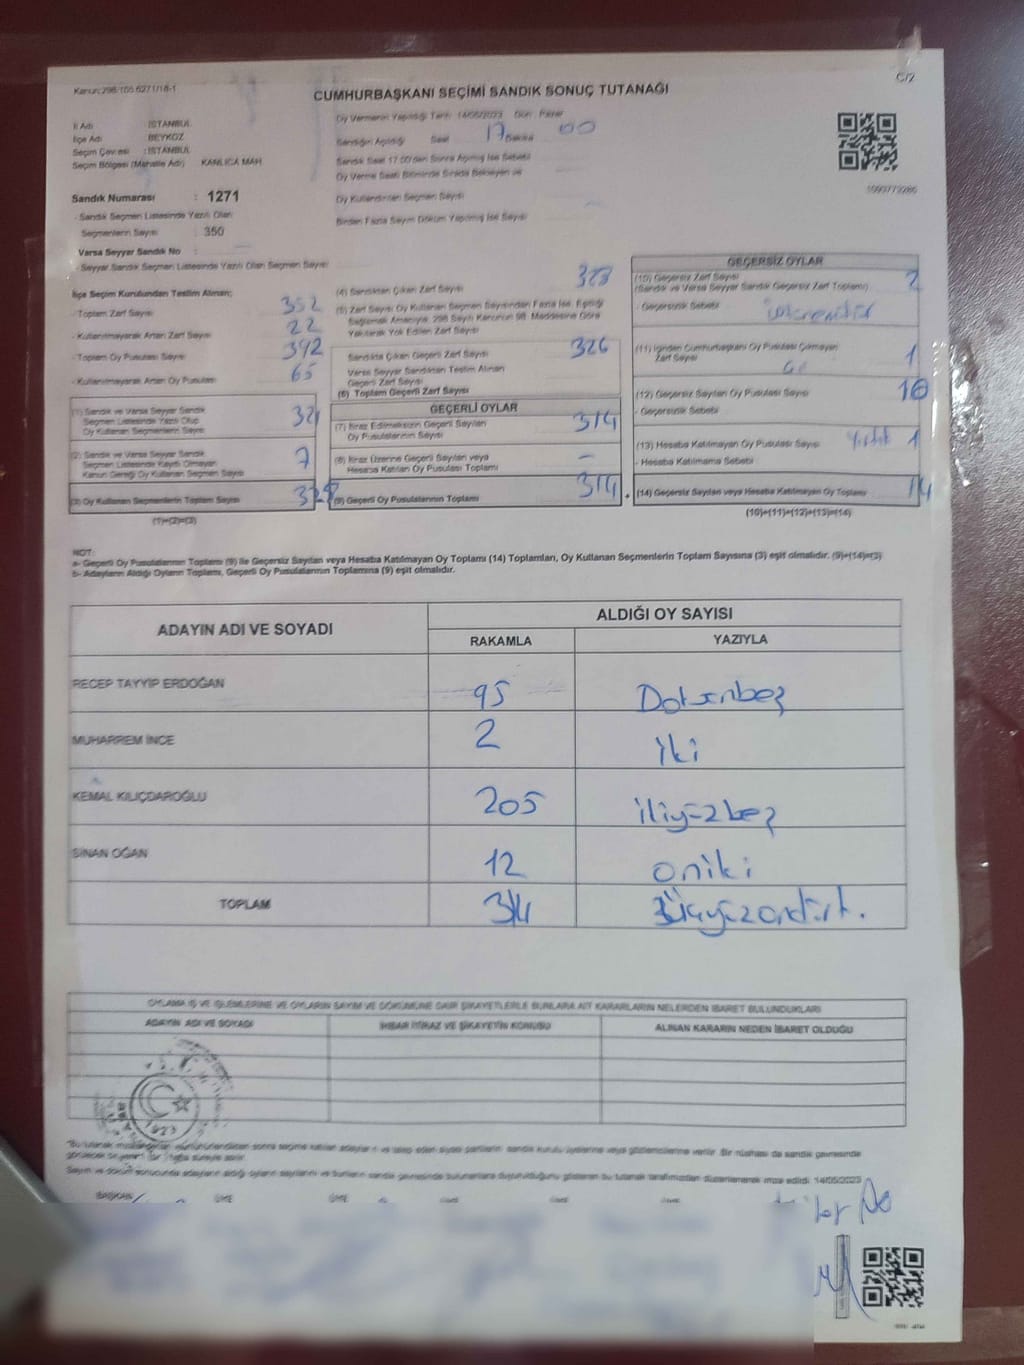 Kanun:298/105 6271/18-1
C/2
CUMHURBAŞKANI SEÇİMİ SANDIK SONUÇ TUTANAĞI
İl Adı : İSTANBUL
İlçe Adı : BEYKOZ
Seçim Çevresi : İSTANBUL
Seçim Bölgesi (Mahalle Adı) KANLICA MAH.
Sandık Numarası : 1271
- Sandık Seçmen Listesinde Yazılı Olan
Seçmenlerin Sayısı : 350
Varsa Seyyar Sandık No :
- Seyyar Sandık Seçmen Listesinde Yazılı Olan Seçmen Sayısı
Oy Vermenin Yapıldığı Tarih 14/05/2023 Gün: Pazar
Sandığın Açıldığı Saat 17 Dakika 00
Sandık Saat 17.00'den Sonra Açılmış İse Sebebi
Oy Verme Saati Bitiminde Sırada Bekleyen ve
Oy Kullandırılan Seçmen Sayısı
Birden Fazla Sayım Döküm Yapılmış İse Sayısı
1093773286
İlçe Seçim Kurulundan Teslim Alınan;
- Toplam Zarf Sayısı 352
- Kullanılmayarak Artan Zarf Sayısı 22
- Toplam Oy Pusulası Sayısı 392
- Kullanılmayarak Artan Oy Pusulası 65
(1) Sandık ve Varsa Seyyar Sandık
Seçmen Listesinde Yazılı Olup
Oy Kullanan Seçmenlerin Sayısı 321
(2) Sandık ve Varsa Seyyar Sandık
Seçmen Listesinde Kayıtlı Olmayan
Kanun Gereği Oy Kullanan Seçmen Sayısı 7
(3) Oy Kullanan Seçmenlerin Toplam Sayısı 328
(1)+(2)=(3)
(4) Sandıktan Çıkan Zarf Sayısı 328
(5) Zarf Sayısı Oy Kullanan Seçmen Sayısından Fazla İse, Eşitliği
Sağlamak Amacıyla 298 Sayılı Kanunun 98. Maddesine Göre
Yakılarak Yok Edilen Zarf Sayısı
Sandıkta Çıkan Geçerli Zarf Sayısı 326
Varsa Seyyar Sandıktan Teslim Alınan
Geçerli Zarf Sayısı
(6) Toplam Geçerli Zarf Sayısı
GEÇERLİ OYLAR
(7) İtiraz Edilmeksizin Geçerli Sayılan
Oy Pusulalarının Sayısı 314
(8) İtiraz Üzerine Geçerli Sayılan veya
Hesaba Katılan Oy Pusulası Toplamı -
(9) Geçerli Oy Pusulalarının Toplamı 314
GEÇERSİZ OYLAR
(10) Geçersiz Zarf Sayısı 2
(Sandık ve Varsa Seyyar Sandık Geçersiz Zarf Toplamı)
- Geçersizlik Sebebi
(11) İçinden Cumhurbaşkanı Oy Pusulası Çıkmayan
Zarf Sayısı 1
(12) Geçersiz Sayılan Oy Pusulası Sayısı 10
- Geçersizlik Sebebi
(13) Hesaba Katılmayan Oy Pusulası Sayısı Yırtık 1
- Hesaba Katılmama Sebebi
(14) Geçersiz Sayılan veya Hesaba Katılmayan Oy Toplamı 14
(10)+(11)+(12)+(13)=(14)
NOT:
a- Geçerli Oy Pusulalarının Toplamı (9) ile Geçersiz Sayılan veya Hesaba Katılmayan Oy Toplamı (14) Toplamları, Oy Kullanan Seçmenlerin Toplam Sayısına (3) eşit olmalıdır. (9)+(14)=(3)
b- Adayların Aldığı Oyların Toplamı, Geçerli Oy Pusulalarının Toplamına (9) eşit olmalıdır.
ADAYIN ADI VE SOYADI ALDIĞI OY SAYISI
RAKAMLA YAZIYLA
RECEP TAYYİP ERDOĞAN 95 Doksanbeş
MUHARREM İNCE 2 iki
KEMAL KILIÇDAROĞLU 205 ikiyüzbeş
SİNAN OĞAN 12 oniki
TOPLAM 314 Üçyüzondört.
OYLAMA İŞ VE İŞLEMLERİNE VE OYLARIN SAYIM VE DÖKÜMÜNE DAİR ŞİKAYETLERLE BUNLARA AİT KARARLARIN NELERDEN İBARET BULUNDUKLARI
ADAYIN ADI VE SOYADI İHBAR İTİRAZ VE ŞİKAYETİN KONUSU ALINAN KARARIN NEDEN İBARET OLDUĞU
1923
Sayım ve döküm sonucunda adayların aldığı oyların sayılarını ve bunların sandık çevresinde bulunanlara duyurulduğunu gösteren bu tutanak tarafımızdan düzenlenerek imza edildi. 14/05/2023
BAŞKAN ÜYE ÜYE ÜYE ÜYE ÜYE